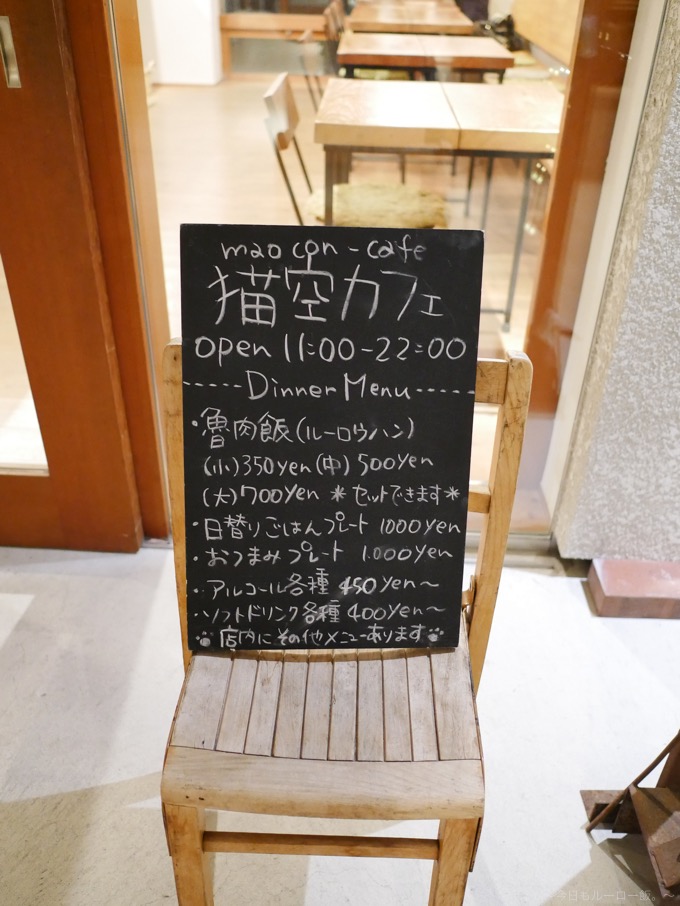 mao con - cafe
猫空カフェ
open 11:00-22:00
-----Dinner Menu-----
・魯肉飯(ルーロウハン)
(小)350yen(中)500yen
(大)700yen *セットできます*
・日替りごはんプレート 1000yen
・おつまみプレート 1.000yen
・アルコール各種 450yen〜
・ソフトドリンク各種 400yen〜
店内にその他メニューあります
今日もルーロー飯。〜